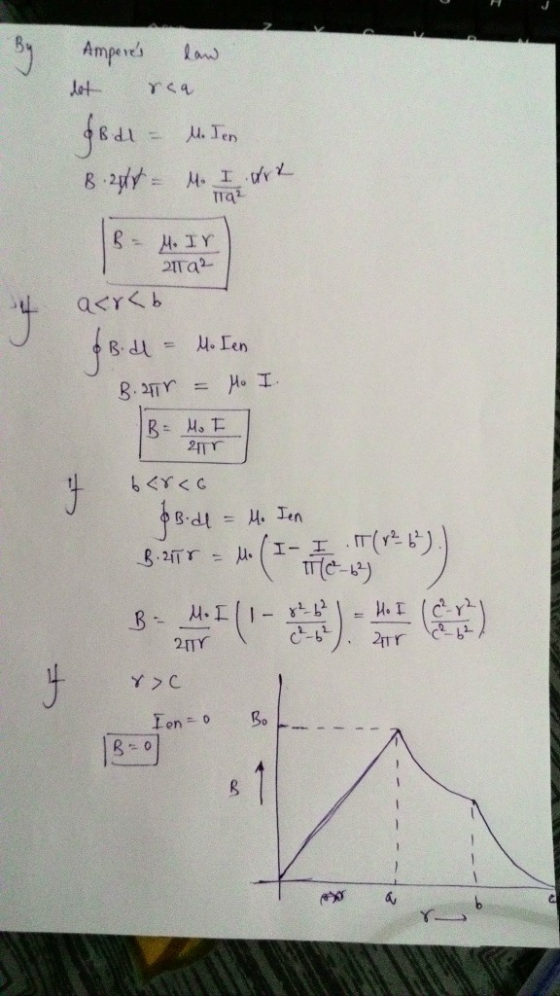 By Ampere's law
let r<a
∮B·dl = μ₀ Ien
B·2πr = μ₀ I/πa² · πr²
B = μ₀ I r / 2πa²
if a<r<b
∮B·dl = μ₀ Ien
B·2πr = μ₀ I.
B = μ₀ I / 2πr
if b<r<c
∮B·dl = μ₀ Ien
B·2πr = μ₀ (I - I/π(c²-b²) · π(r²-b²))
B = μ₀ I/2πr (1 - r²-b²/c²-b²). = μ₀ I/2πr (c²-r²/c²-b²)
if r>c
Ien = 0
B = 0
B₀
B
a
b
c
r